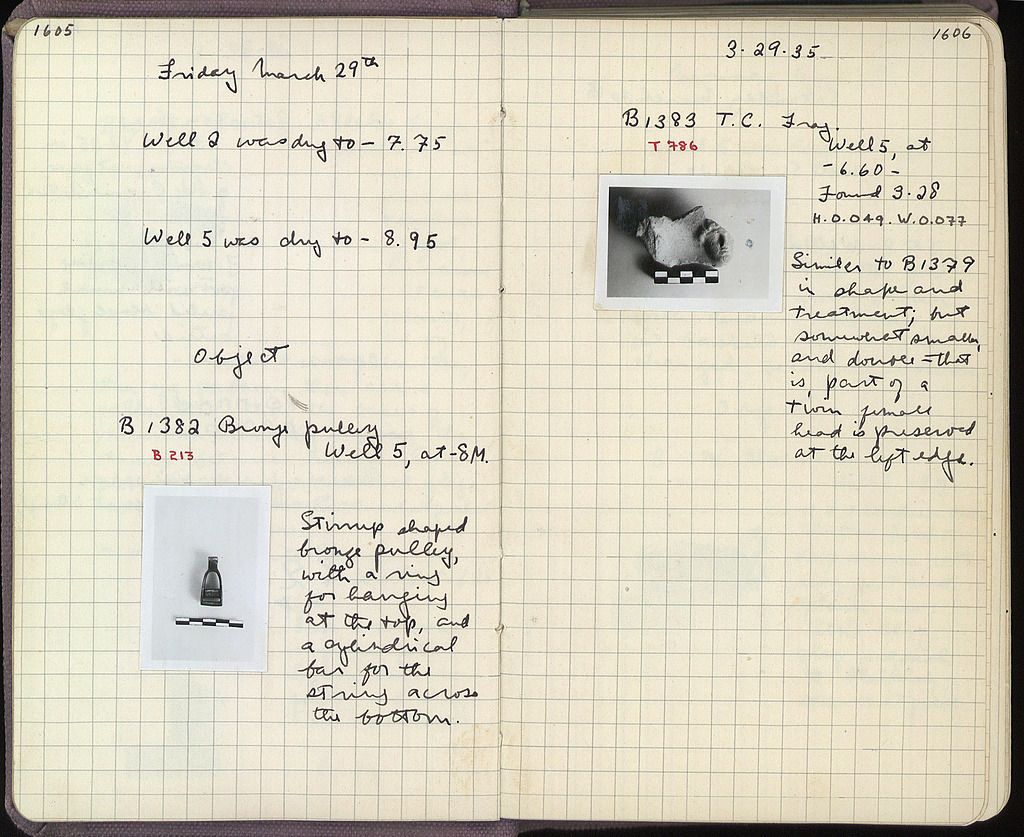 1605
Friday March 29th
Well 2 was dug to - 7.75
Well 5 was dug to - 8.95
Object
B 1382 Bronze pulley
B 213
Well 5, at -8M.
Stirrup shaped
bronze pulley,
with a ring
for hanging
at the top, and
a cylindrical
bar for the
string across
the bottom.
1606
3-29-35
B1383 T.C. Frag.
T 786
Well 5, at
-6.60-
Found 3-28
H.0.049. W.0.077
Similar to B1379
in shape and
treatment; but
somewhat smaller,
and double = that
is, part of a
twin female
head is preserved
at the left edge.